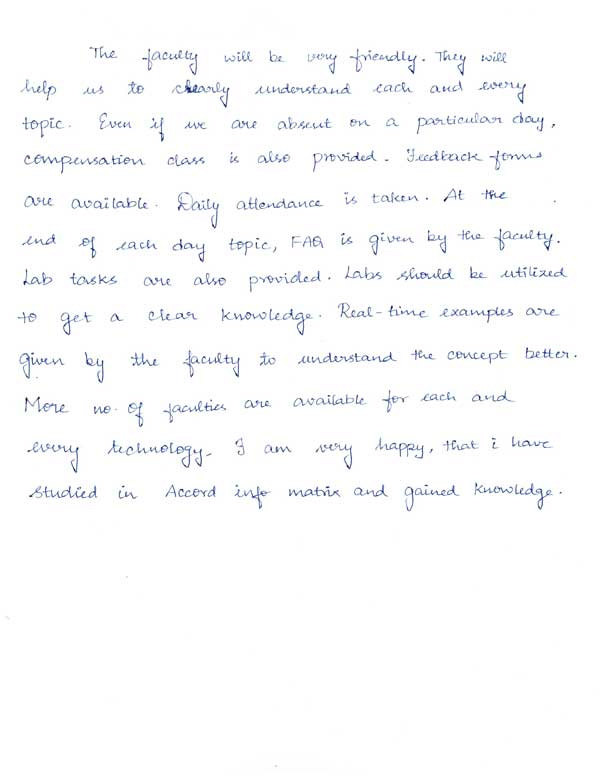 The faculty will be very friendly. They will
help us to clearly understand each and every
topic. Even if we are absent on a particular day,
compensation class is also provided. Feedback forms
are available. Daily attendance is taken. At the
end of each day topic, FAQ is given by the faculty.
Lab tasks are also provided. Labs should be utilized
to get a clear knowledge. Real-time examples are
given by the faculty to understand the concept better.
More no. of faculties are available for each and
every technology. I am very happy, that i have
studied in Accord info matrix and gained knowledge.